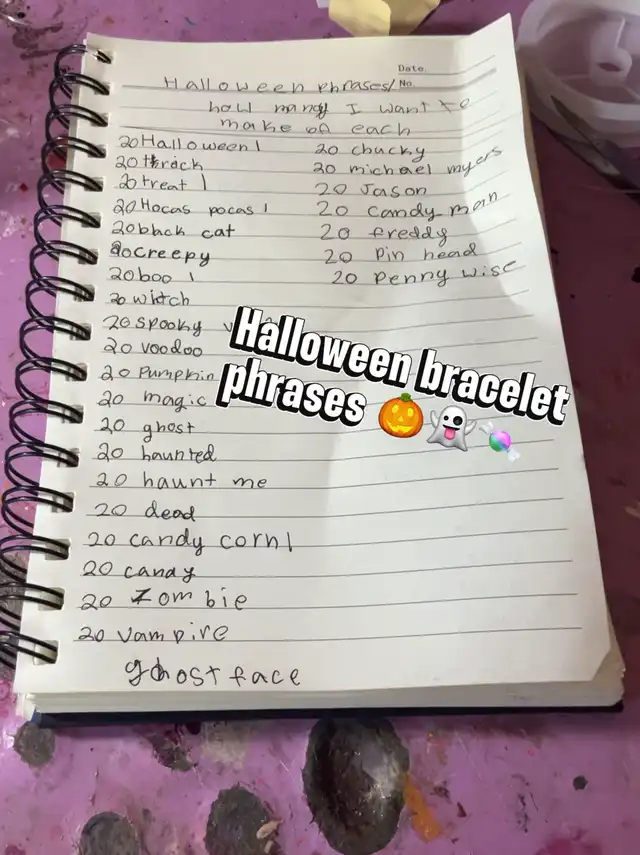 Date.
No.
Halloween phrases/
how many I want to
make of each
20 Halloween 1
20 trick
20 treat 1
20 Hocas pocas 1
20 black cat
20 creepy
20 boo 1
20 witch
20 spooky
20 voodoo
20 Pumpkin
20 magic
20 ghost
20 haunted
20 haunt me
20 dead
20 candy corn 1
20 candy
20 zombie
20 vampire
ghost face
20 chucky
20 michael myers
20 Jason
20 candy man
20 freddy
20 Pin head
20 Penny wise
Halloween bracelet
phrases 🎃👻🍬